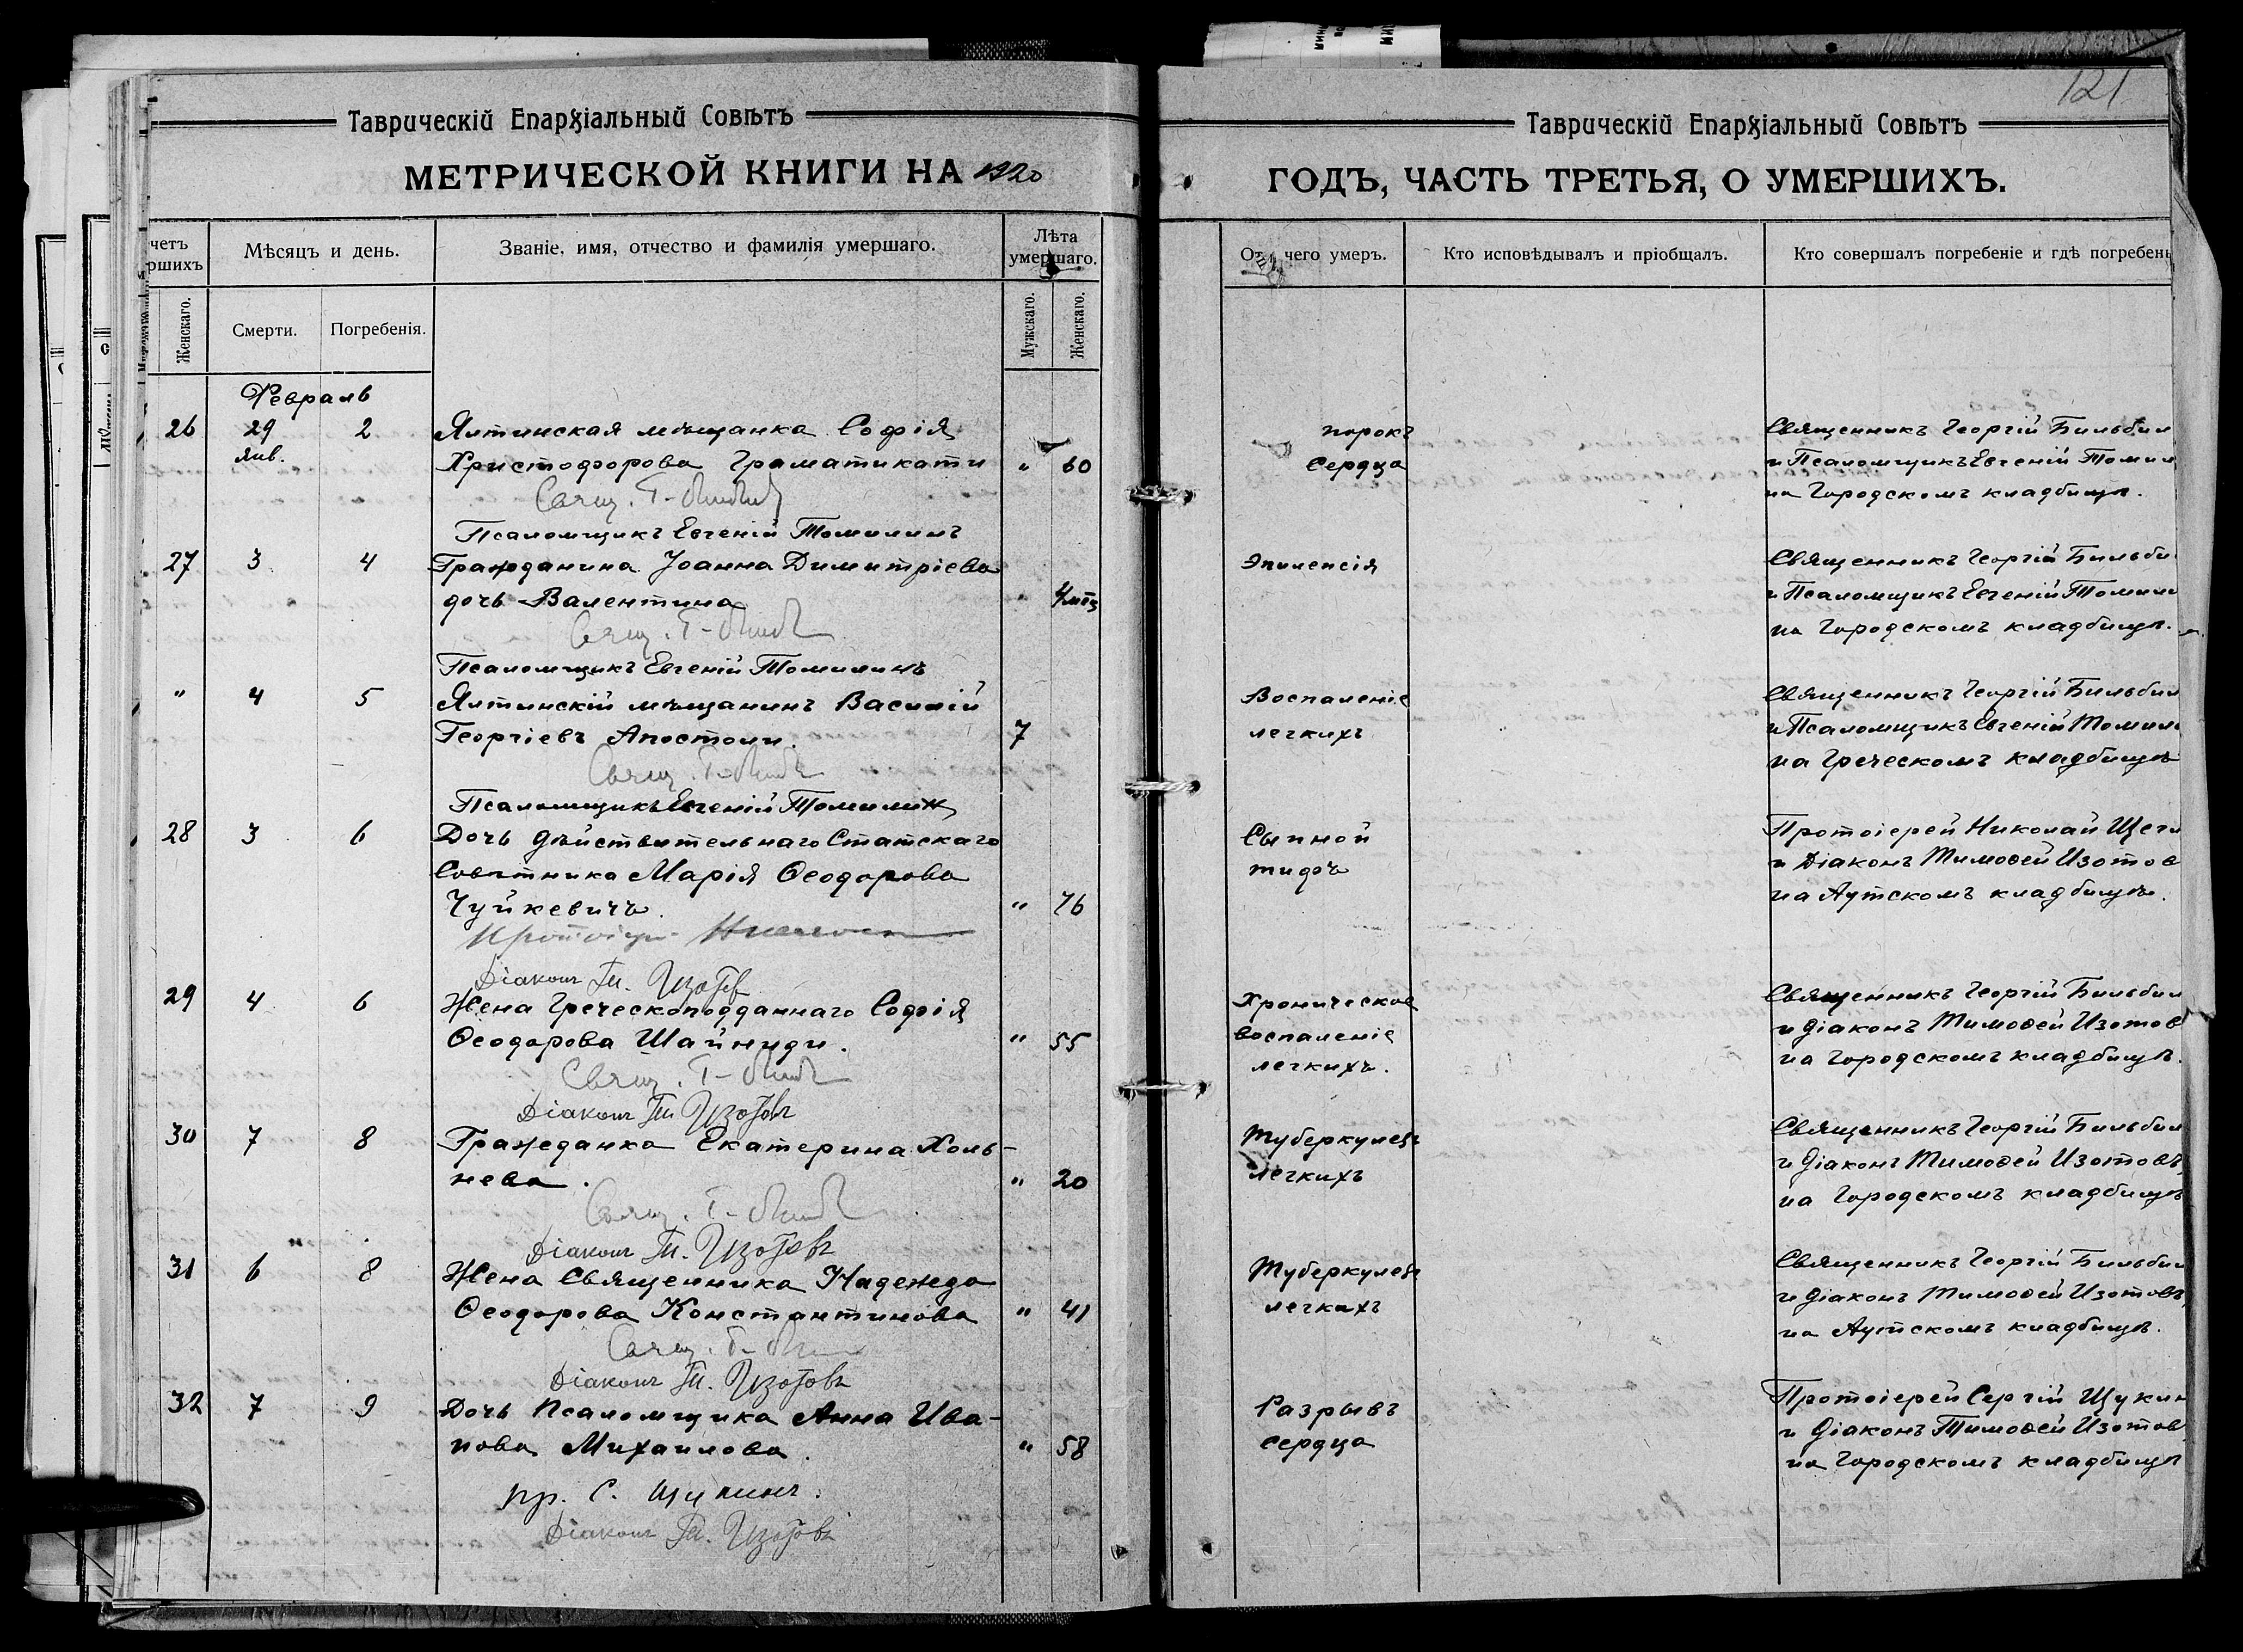 121
Таврическій Епархіальный Совѣтъ
МЕТРИЧЕСКОЙ КНИГИ НА 1920
четъ
ршихъ
Мѣсяцъ и день.
Званіе, имя, отчество и фамилія умершаго.
Лѣта
умершаго.
Женскаго.
Смерти.
Погребенія.
Мужскаго.
Женскаго.
Февраль
26 29 2 Ялтинская мѣщанка Софія
янв. Христофорова Граматикати " 60
Свящ. Г.
Псаломщикъ Евгеній Томилинъ
27 3 4 Гражданина Іоанна Димитріева
дочь Валентина " 4 мѣц
Свящ. Г.
Псаломщикъ Евгеній Томилинъ
" 4 5 Ялтинскій мѣщанинъ Василій
Георгіевъ Апостоли. 7
Свящ. Г.
Псаломщикъ Евгеній Томилин
28 3 6 Дочь дѣйствительнаго Статскаго
Совѣтника Марія Ѳеодорова
Чуйкевичъ. " 76
Протоіер. Николай
Діаконъ Тм. Изотов
29 4 6 Жена Греческоподданнаго Софія
Ѳеодорова Шайниди. " 55
Свящ. Г.
Діаконъ Тм. Изотовъ
30 7 8 Гражданка Екатерина Холь-
нева. " 20
Свящ. Г.
Діаконъ Тм. Изотовъ
31 6 8 Жена Священника Надежда
Ѳеодорова Константинова " 41
Свящ. Г.
Діаконъ Тм. Изотовъ
32 7 9 Дочь Псаломщика Анна Ива-
нова Михаилова. " 58
пр. С. Щукинъ.
Діаконъ Тм. Изотовъ
Таврическій Епархіальный Совѣтъ
ГОДЪ, ЧАСТЬ ТРЕТЬЯ, О УМЕРШИХЪ.
Отъ чего умеръ.
Кто исповѣдывалъ и пріобщалъ.
Кто совершалъ погребеніе и гдѣ погребенъ
порокъ Священникъ Георгій Бильбил
Сердца и Псаломщикъ Евгеній Томил
на Городскомъ кладбищѣ.
Эпилепсія Священникъ Георгій Бильби
и Псаломщикъ Евгеній Томил
на Городскомъ кладбищѣ.
Воспаленіе Священникъ Георгій Бильбил
легкихъ и Псаломщикъ Евгеній Томил
на Греческомъ кладбищѣ
Сыпной Протоіерей Николай Щегл
тифъ и Діаконъ Тимоѳей Изотов
на Аутскомъ кладбищѣ.
Хроническое Священникъ Георгій Бильбил
воспаленіе и діаконъ Тимоѳей Изотов
легкихъ. на Городскомъ кладбищѣ.
Туберкулезъ Священникъ Георгій Бильбил
легкихъ и діаконъ Тимоѳей Изотовъ,
на Городскомъ кладбищѣ
Туберкулезъ Священникъ Георгій Бильбил
легкихъ и діаконъ Тимоѳей Изотовъ,
на Аутскомъ кладбищѣ.
Разрывъ Протоіерей Сергій Щукин
сердца и діаконъ Тимоѳей Изотов
на Городскомъ кладбищѣ